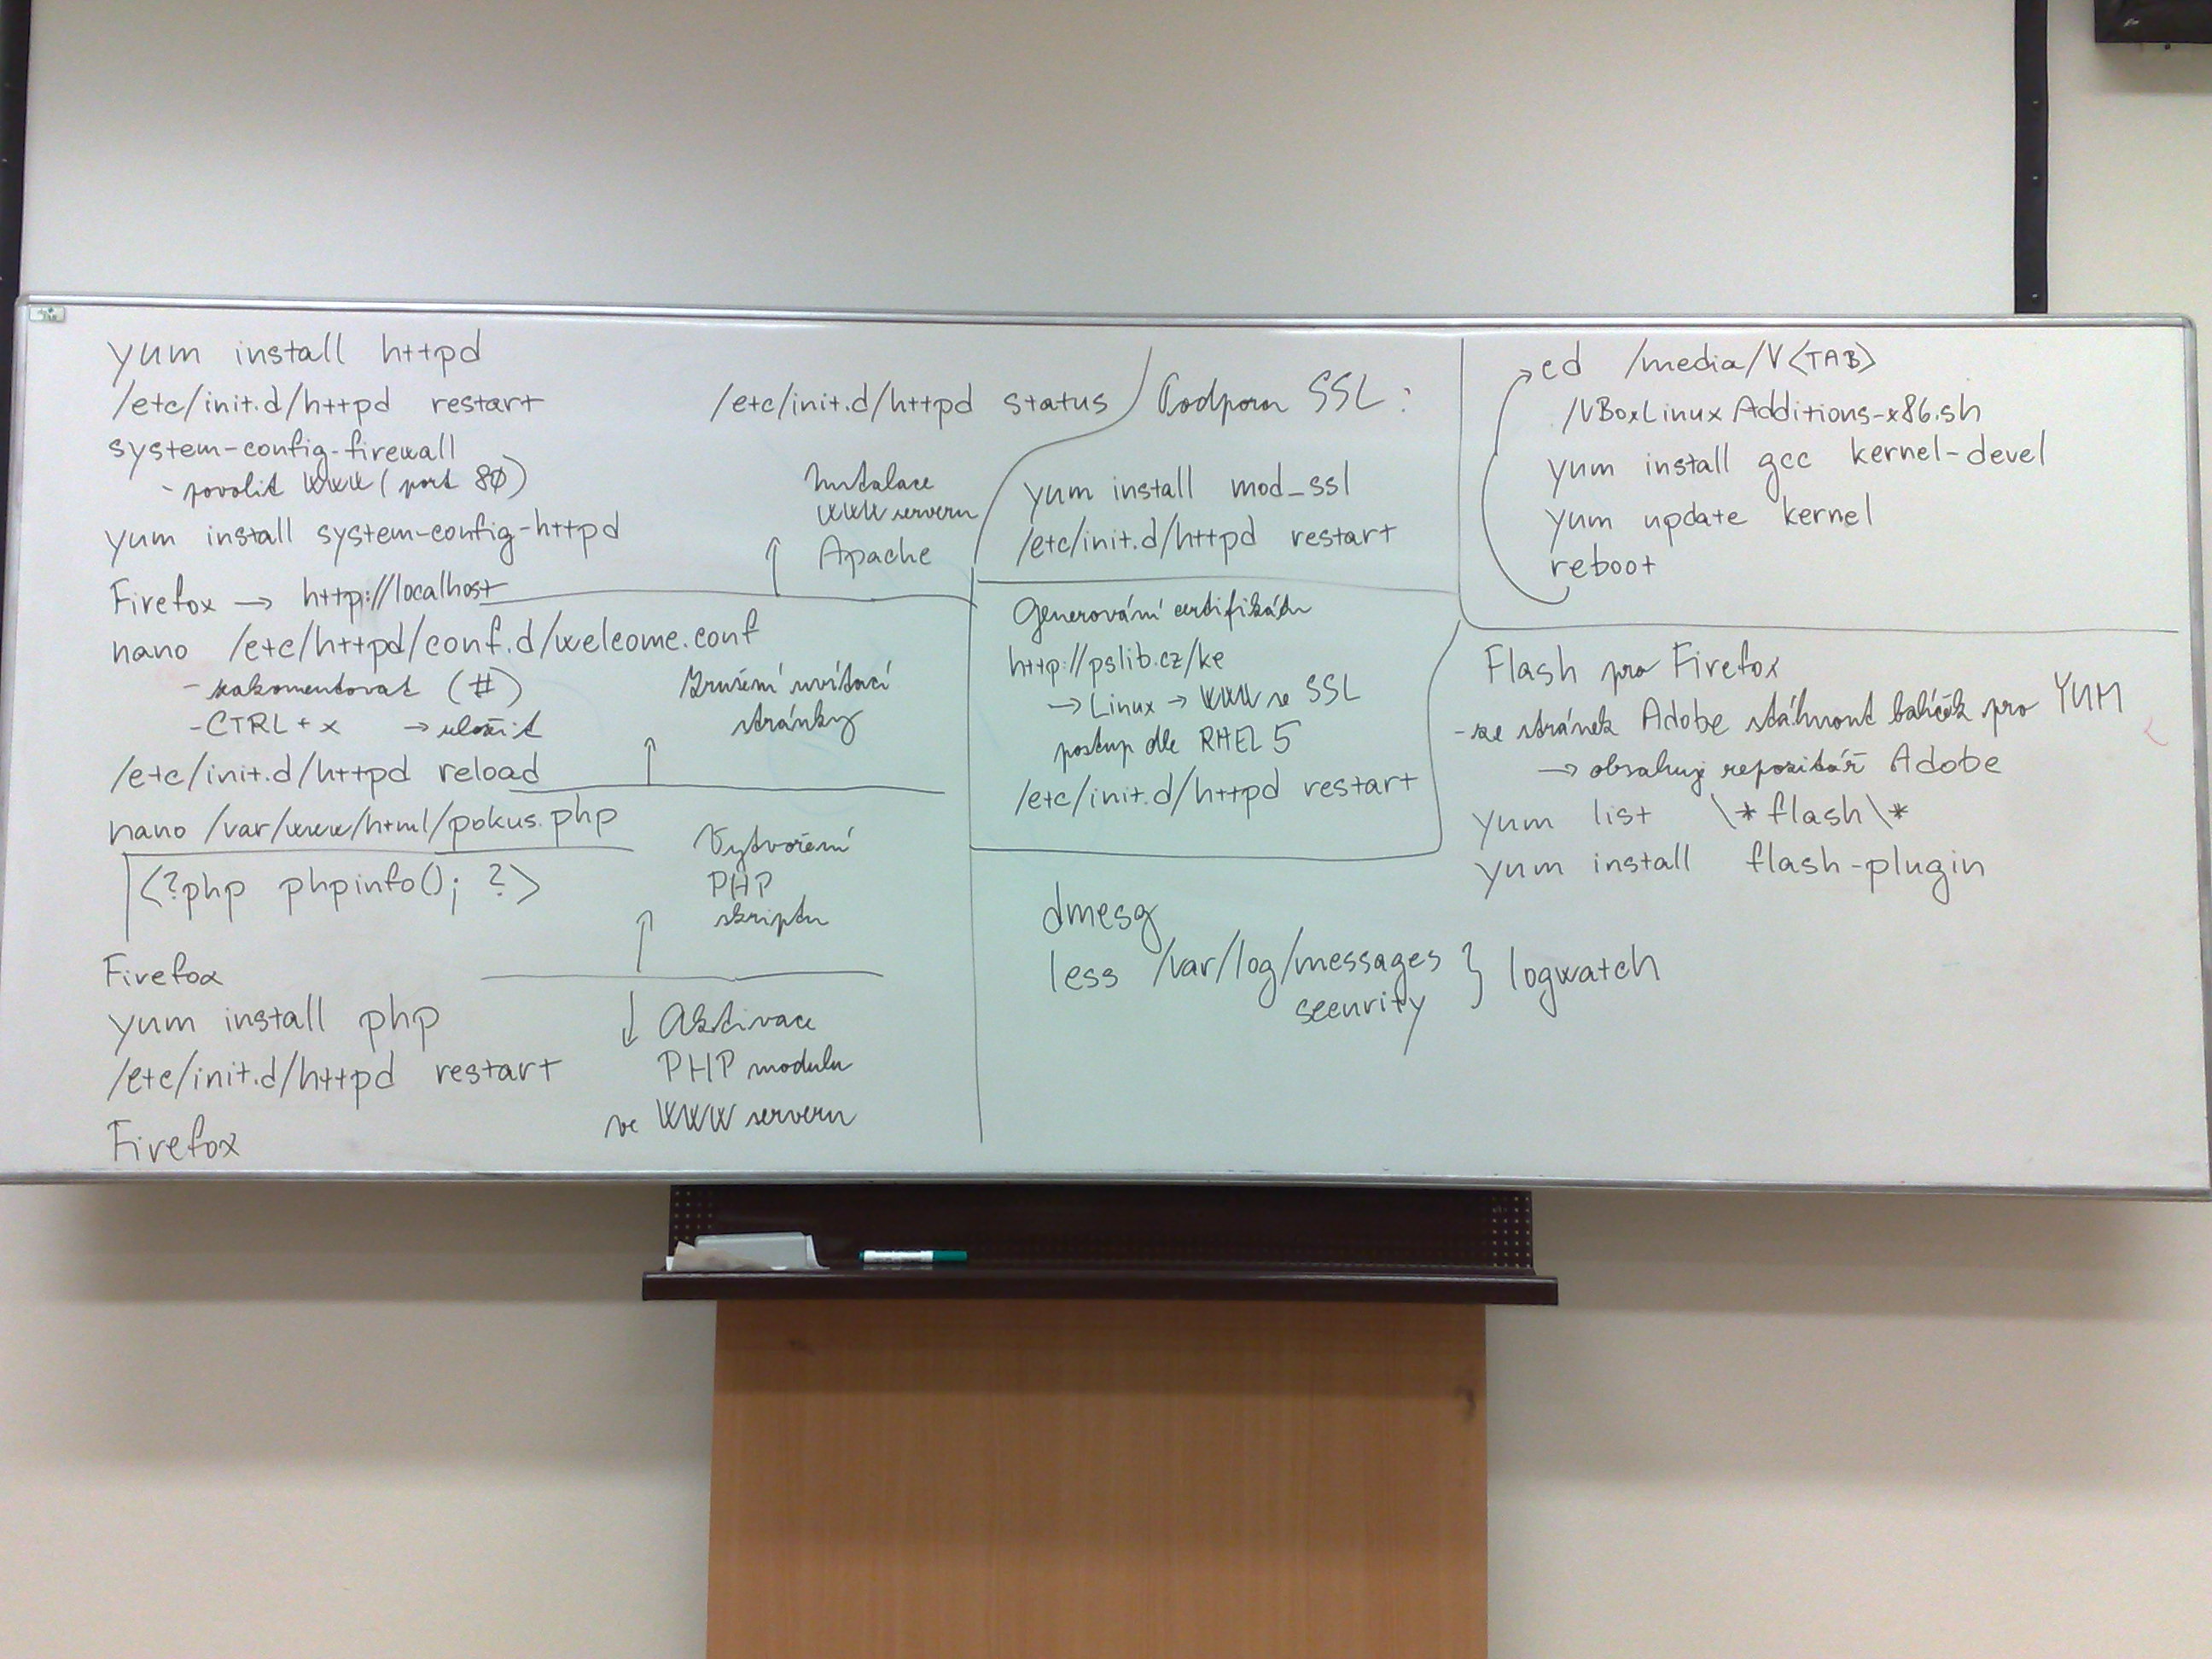 yum install httpd
/etc/init.d/httpd restart
/etc/init.d/httpd status
system-config-firewall
- povolit WWW (port 80)
yum install system-config-httpd
Instalace
WWW serveru
Apache
Firefox → http://localhost
nano /etc/httpd/conf.d/welcome.conf
- zakomentovat (#)
- CTRL + x → uložit
/etc/init.d/httpd reload
Zrušení uvítací
stránky
nano /var/www/html/pokus.php
<?php phpinfo(); ?>
Vytvoření
PHP
skriptu
Firefox
yum install php
/etc/init.d/httpd restart
Firefox
Aktivace
PHP modulu
ve WWW serveru
Podpora SSL:
yum install mod_ssl
/etc/init.d/httpd restart
Generování certifikátu
http://pslib.cz/ke
→ Linux → WWW se SSL
postup dle RHEL 5
/etc/init.d/httpd restart
dmesg
less /var/log/messages } logwatch
security
cd /media/V<TAB>
/VBoxLinuxAdditions-x86.sh
yum install gcc kernel-devel
yum update kernel
reboot
Flash pro Firefox
- ze stránek Adobe stáhnout balíček pro YUM
→ obsahuje repozitář Adobe
yum list \*flash\*
yum install flash-plugin